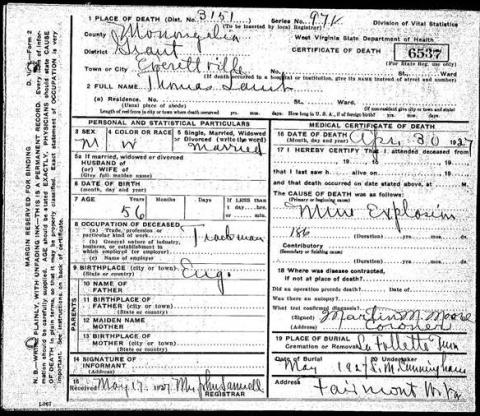 1 PLACE OF DEATH (Dist. No. 3151 Series No. 974
(To be inserted by local Registrar)
Division of Vital Statistics
County Monongalia
West Virginia State Department of Health
District Grant
CERTIFICATE OF DEATH
6537
(For State Reg. use only)
Town or City Everettville
No. St. Ward
(If death occurred in a hospital or institution, give its name instead of street and number)
2 FULL NAME Thomas
(a) Residence. No. St. Ward.
(Usual place of abode)
(If nonresident give city or town and state)
Length of residence in city or town where death occurred years months days. How long in U. S., if of foreign birth? years months days
PERSONAL AND STATISTICAL PARTICULARS
3 SEX
M
4 COLOR OR RACE
W
5 Single, Married, Widowed
or Divorced (write the word)
Married
5a If married, widowed or divorced
HUSBAND of
(or) WIFE of
(Give full maiden name)
6 DATE OF BIRTH
(month, day and year)
7 AGE Years Months Days
56
If LESS than
1 day, hrs.
or min.
8 OCCUPATION OF DECEASED
(a) Trade, profession or
particular kind of work
Trackman
(b) General nature of industry,
business, or establishment in
which employed (or employer)
(c) Name of employer
9 BIRTHPLACE (city or town)
(State or country)
Eng.
PARENTS
10 NAME OF
FATHER
11 BIRTHPLACE OF
FATHER (city or town)
(State or country)
12 MAIDEN NAME
MOTHER
13 BIRTHPLACE OF
MOTHER (city or town)
(State or country)
14 SIGNATURE OF
INFORMANT
(Address)
15
Received May 17, 1927
REGISTRAR
MEDICAL CERTIFICATE OF DEATH
16 DATE OF DEATH
(Month, day and year)
Apr. 30 1927
17 I HEREBY CERTIFY That I attended deceased from
19 to 19
that I last saw h alive on
and that death occurred on date stated above, at M.
The CAUSE OF DEATH was as follows:
(Primary or beginning name)
Mine Explosion
186
(Duration) yrs. mo. da.
Contributory
(Secondary or finishing name)
(Duration) yrs. mo. da.
18 Where was disease contracted,
if not at place of death?
Did an operation precede death? Date of
Was there an autopsy?
What test confirmed diagnosis?
(Signed) Martin M. Moose
(Address) Coroner
19 PLACE OF BURIAL
Cremation or Removal
La Follette Tenn
Date of Burial
May 1927
20 Undertaker
Cunningham
Address
Fairmont W. Va
MARGIN RESERVED FOR BINDING
N. B.—WRITE PLAINLY, WITH UNFADING INK—THIS IS A PERMANENT RECORD. Every item of information should be carefully supplied. AGE should be stated EXACTLY. PHYSICIANS should state CAUSE OF DEATH in plain terms, so that it may be properly classified. Exact statement of OCCUPATION is very important. See instructions on back of certificate.